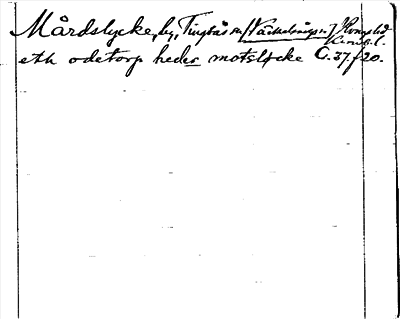 Mårdslycke, by, Tingsås sn [Väckelsång sn] Konga hd
Kronob. l.
eth ödetorp heder motslycke C. 37. f 20.